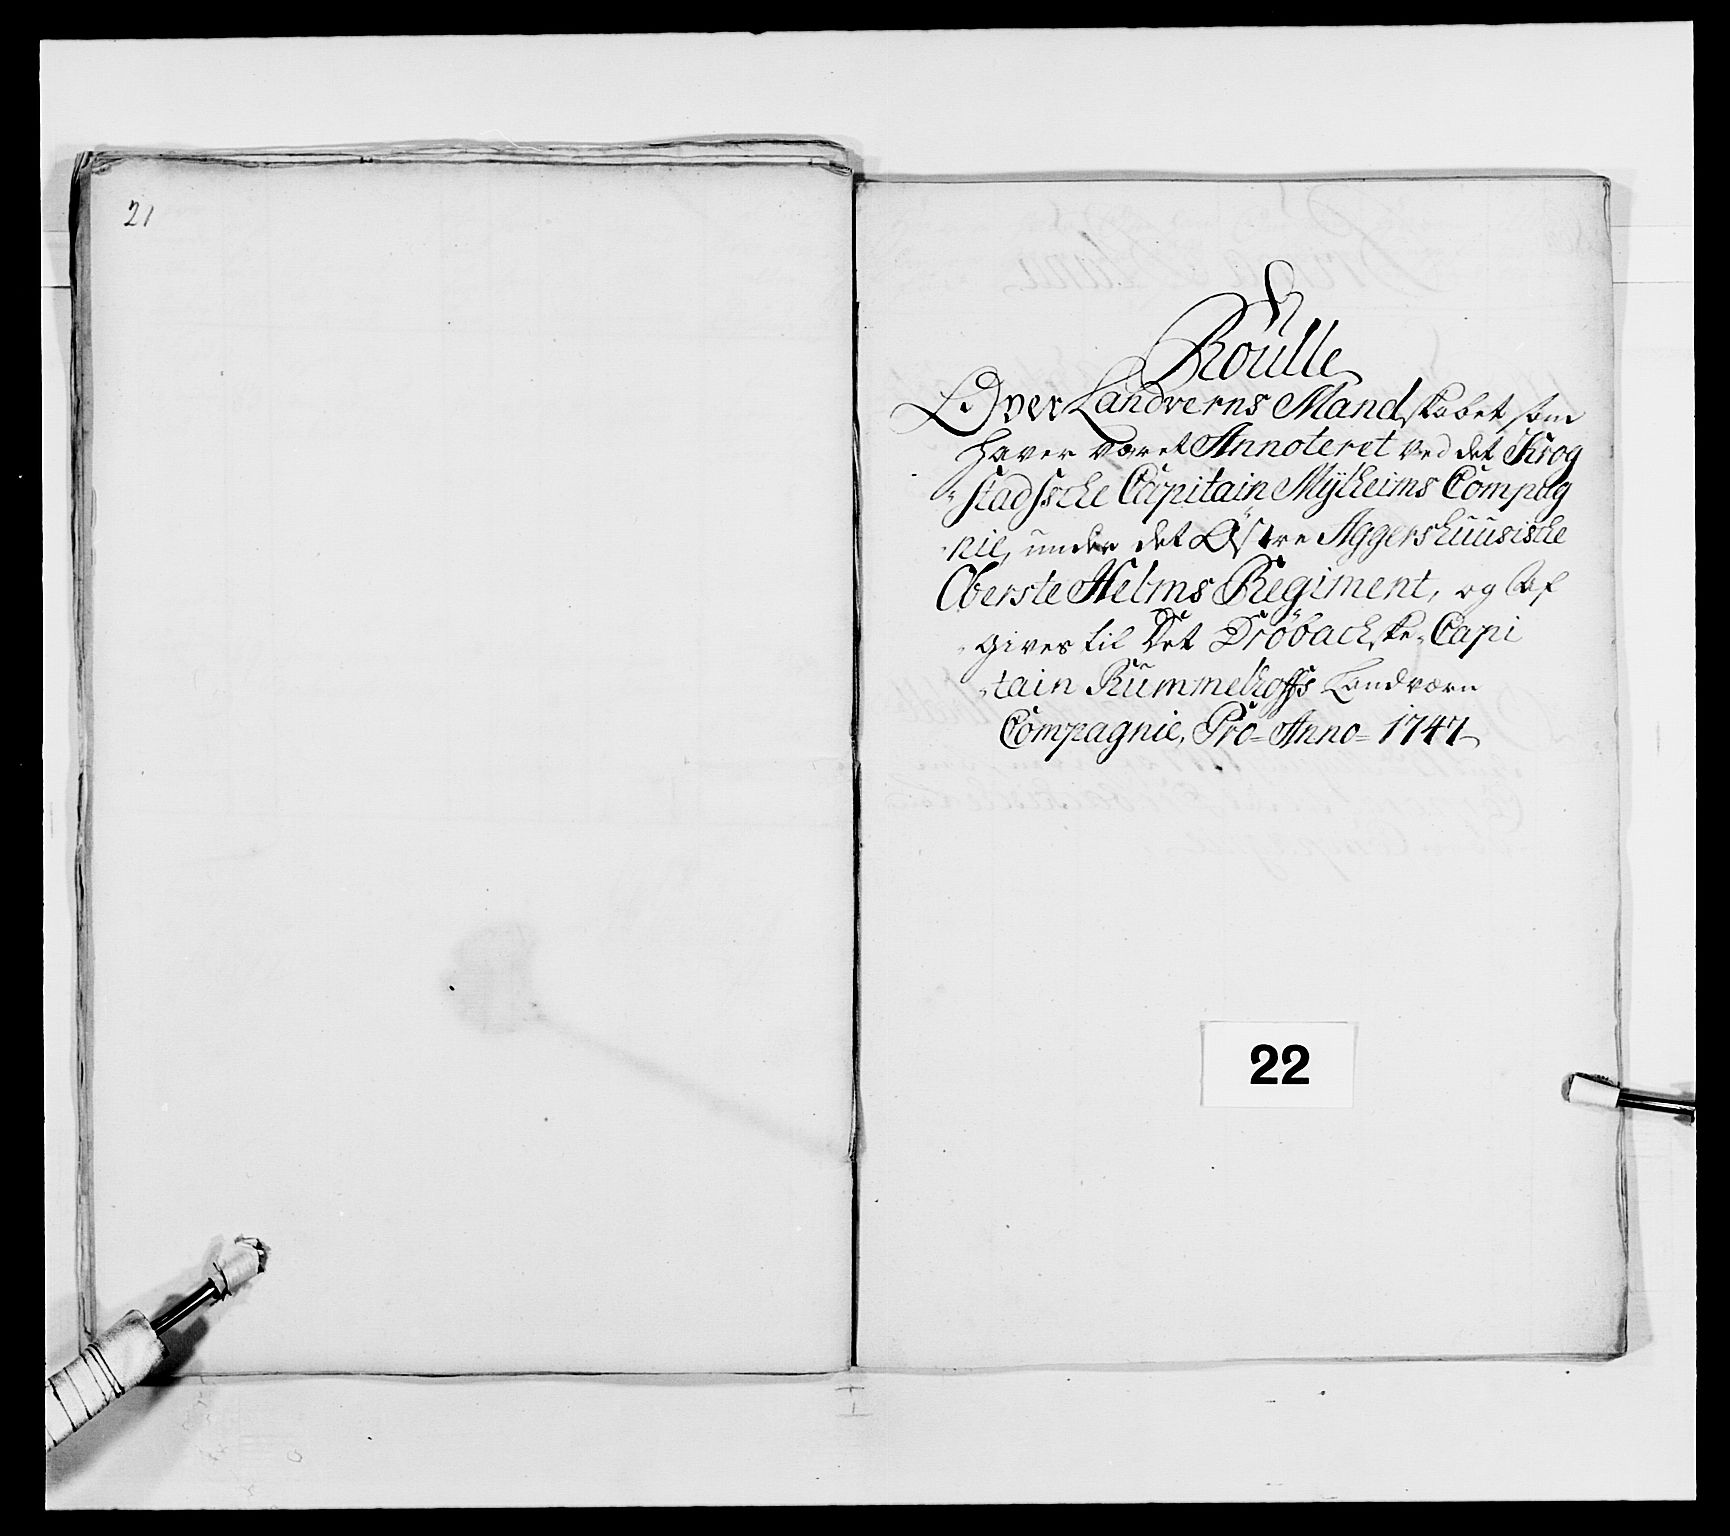 21
Roulle
Over Landverns Mandskabet som
haver været Annoteret ved det Krog
-stadsche Capitain Mÿlheims Compag
-nie, under det Østre Aggershuusische
Oberste Helms Regiment, og Af
-gives til Det Dröbachske Capi
-tain Rummelhoffs Landværn
Compagnie, Pro Anno 1747
22